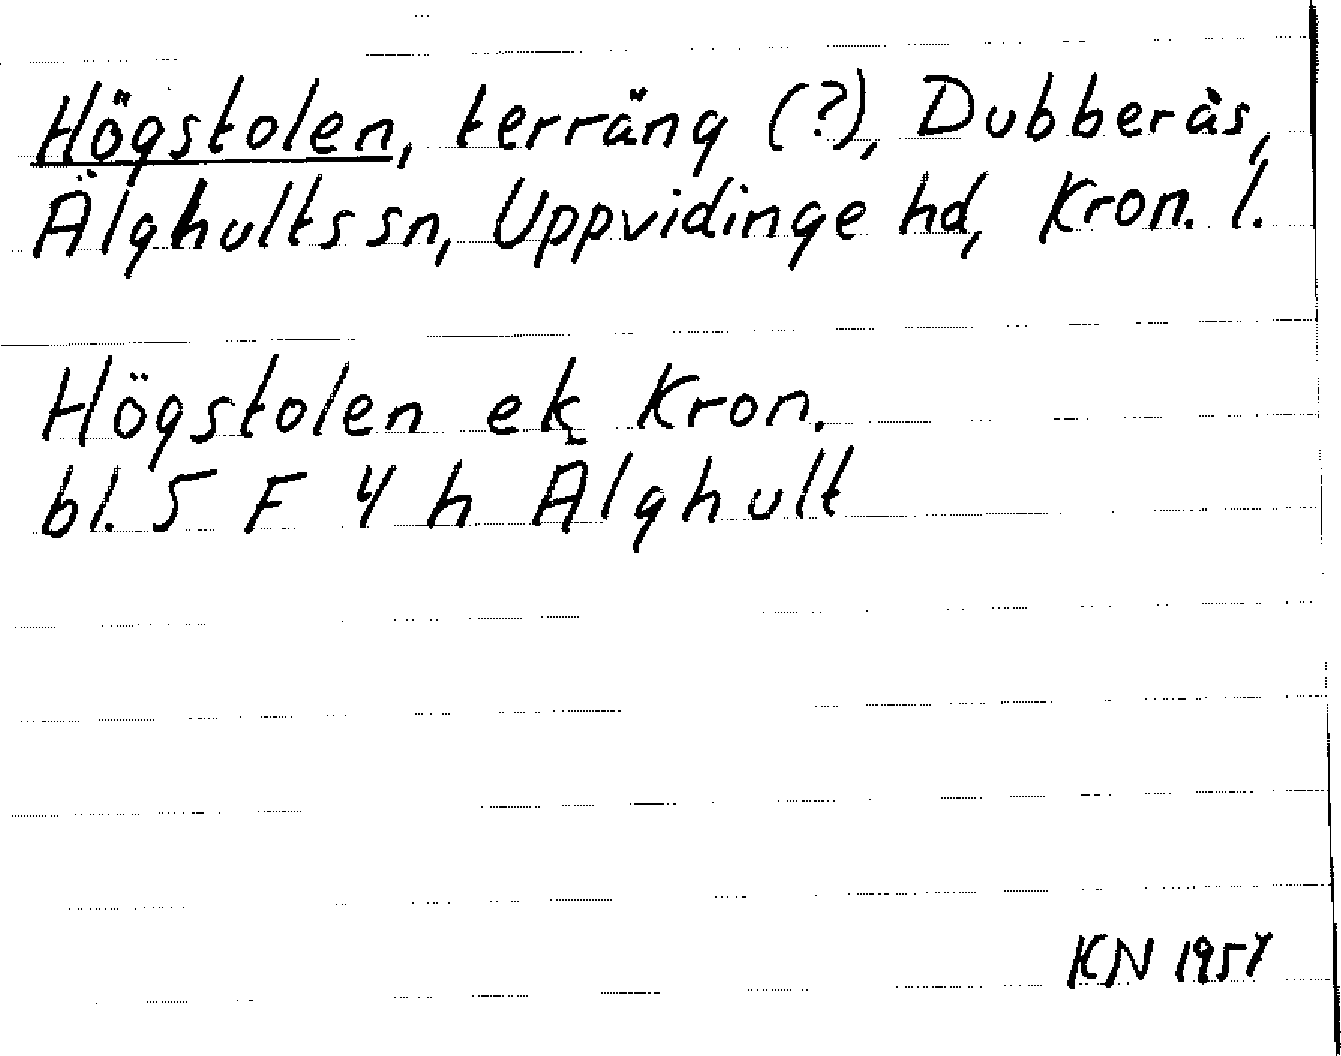 Högstolen, terräng (?), Dubberås,
Älghults sn, Uppvidinge hd, Kron. l.
Högstolen ek Kron.
bl. 5 F 4 h Älghult
KN 1954